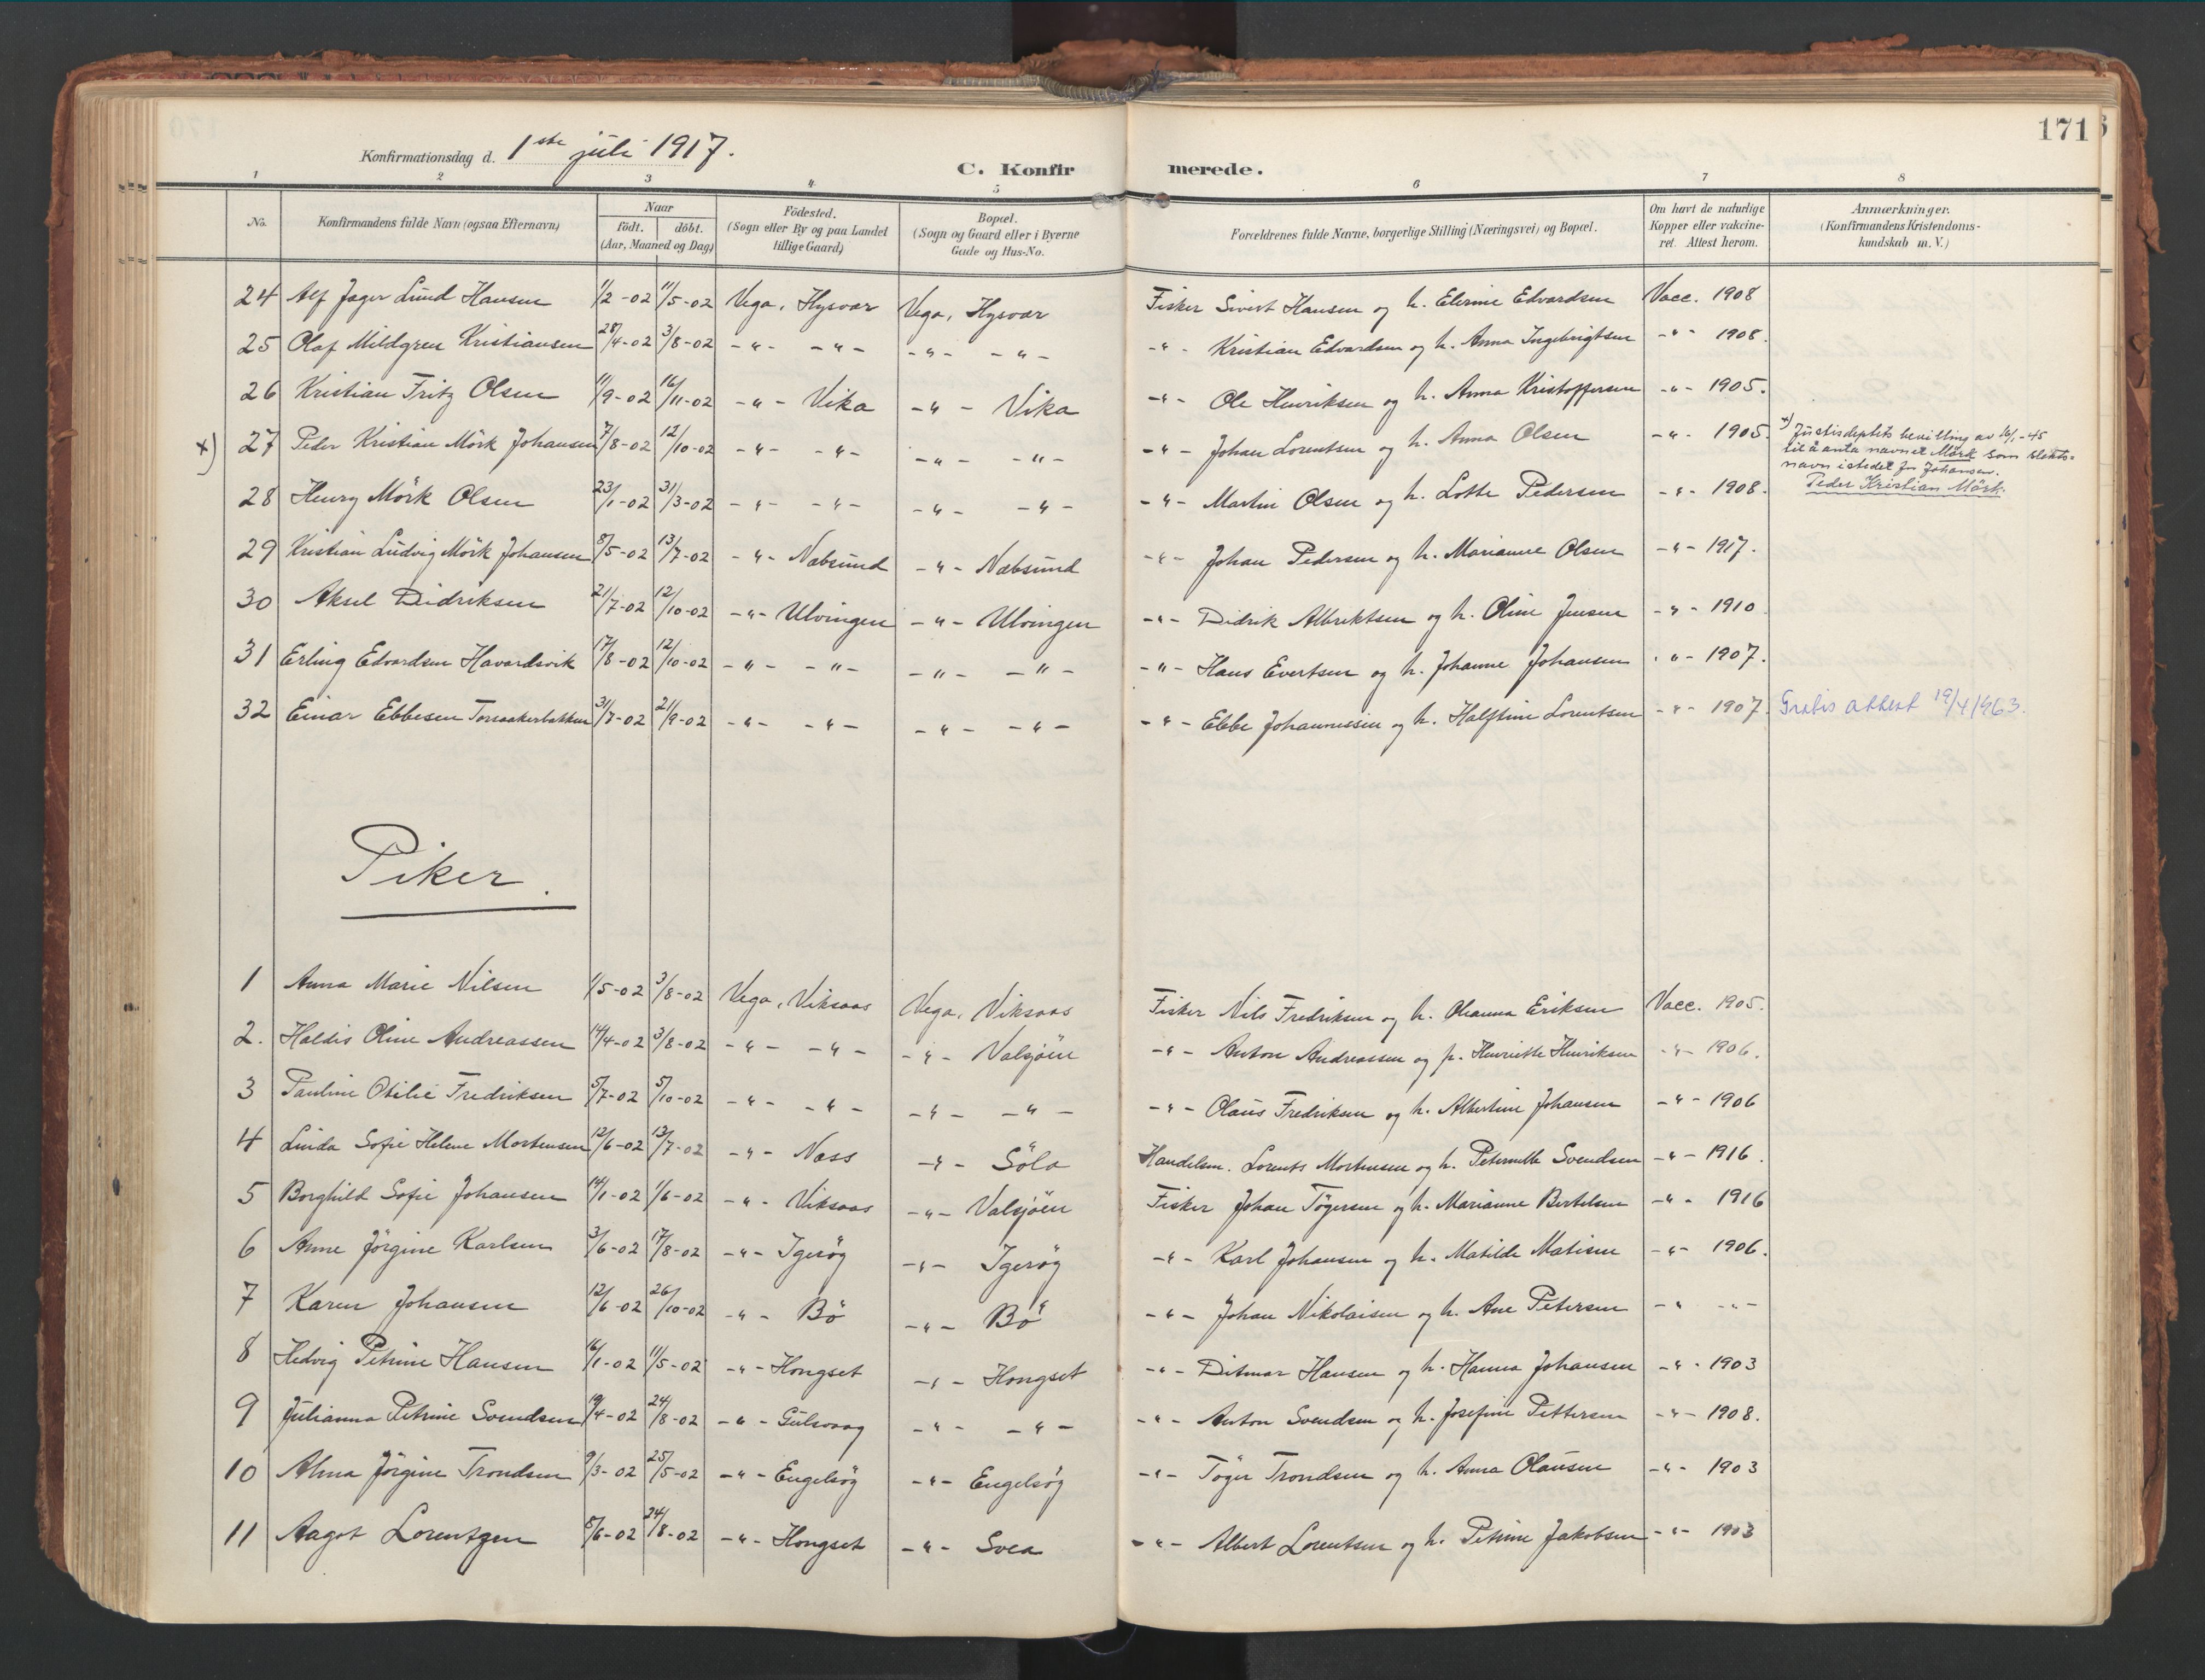 171
Konfirmationsdag d. 1ste juli 1917.
C. Konfirmerede.
1 2 3 4 5 6 7 8
No. Konfirmandens fulde Navn (ogsaa Efternavn) Naar født. døbt. (Aar, Maaned og Dag) Fødested. (Sogn eller By og paa Landet tillige Gaard) Bopæl. (Sogn og Gaard eller i Byerne Gade og Hus-No. Forældrenes fulde Navne, borgerlige Stilling (Næringsvei) og Bopæl. Om havt de naturlige Kopper eller vakcineret. Attest herom. Anmærkninger. (Konfirmandens Kristendomskundskab m. V.)
24 Alf Jager Lund Hansen 1/2-02 11/5-02 Vega, Hysvær Vega, Hysvær Fisker Sivert Hansen og h. Elerine Edvardsen Vacc. 1908
25 Olaf Mildgren Kristiansen 28/4-02 3/8-02 -"- -"- -"- -"- -"- Kristian Edvardsen og h. Anna Ingebrigtsen -"- 1908.
26 Kristian Fritz Olsen 11/9-02 16/11-02 -"- Vika -"- Vika -"- Ole Henriksen og h. Anna Kristoffersen -"- 1905.
x) 27 Peder Kristian Mörk Johansen 7/8-02 12/10-02 -"- -"- -"- -"- -"- Johan Lorentsen og h. Anna Olsen -"- 1905. x) Justisdeptets bevilling av 16/1-45
til å anta navnet Mörk som slekts=
navn istedet for Johansen.
Peder Kristian Mörk.
28 Henry Mörk Olsen 23/1-02 31/3-02 -"- -"- -"- -"- -"- Martin Olsen og h. Lotte Pedersen -"- 1908.
29 Kristian Ludvig Mörk Johansen 8/5-02 13/7-02 -"- Nabsund -"- Nabsund -"- Johan Pedersen og h. Marianne Olsen -"- 1917.
30 Aksel Didriksen 21/7-02 12/10-02 -"- Ulvingen -"- Ulvingen -"- Didrik Albriktsen og h. Oline Jensen -"- 1910
31 Erling Edvardsen Havardsvik 17/8-02 12/10-02 -"- -"- -"- -"- -"- Hans Evertsen og h. Johanne Johansen -"- 1907.
32 Einar Ebbesen Torsaakerbakken 31/7-02 21/9-02 -"- -"- -"- -"- -"- Ebbe Johannessen og h. Halftine Lorentsen -"- 1907. Gratis attest 19/4 1963.
Piker.
1 Anna Marie Nilsen 1/5-02 3/8-02 Vega, Viksaas Vega, Viksaas Fisker Nils Fredriksen og h. Oleanna Eriksen Vacc. 1905.
2. Haldis Oline Andreassen 14/4-02 3/8-02 -"- -"- -"- Valsjöen -"- Anton Andreassen og h. Henriette Henriksen -"- 1906.
3 Pauline Otilie Fredriksen 5/7-02 5/10-02 -"- -"- -"- -"- -"- Olaus Fredriksen og h. Albertine Johansen -"- 1906
4 Linda Sofie Helene Mortensen 12/6-02 13/7-02 -"- Nass -"- Söla Handelsm. Lorents Mortensen og h. Peternelle Svendsen -"- 1916.
5 Borghild Sofie Johansen 14/1-02 1/6-02 -"- Viksaas -"- Valsjöen Fisker Johan Tögersen og h. Marianne Bertelsen -"- 1916
6 Anne Jörgine Karlsen 3/6-02 17/8-02 -"- Igeröy -"- Igeröy -"- Karl Johansen og h. Matilde Matisen -"- 1906.
7 Karen Johansen 12/6-02 26/10-02 -"- Bö -"- Bö -"- Johan Nikolaisen og h. Ane Petersen -"- -"-
8 Hedvig Petrine Hansen 16/1-02 11/5-02 -"- Hongset -"- Hongset -"- Ditmar Hansen og h. Hanna Johansen -"- 1903
9 Julianna Petrine Svendsen 19/4-02 24/8-02 -"- Gulsvaag -"- -"- -"- Anton Svendsen og h. Josefine Pettersen -"- 1908.
10 Alma Jörgine Trondsen 9/3-02 25/5-02 -"- Engelsöy -"- Engelsöy -"- Töger Trondsen og h. Anna Olausen -"- 1903
11 Aagot Lorentzen 8/6-02 24/8-02 -"- Hongset -"- Svea -"- Albert Lorentsen og h. Petrine Jakobsen -"- 1903